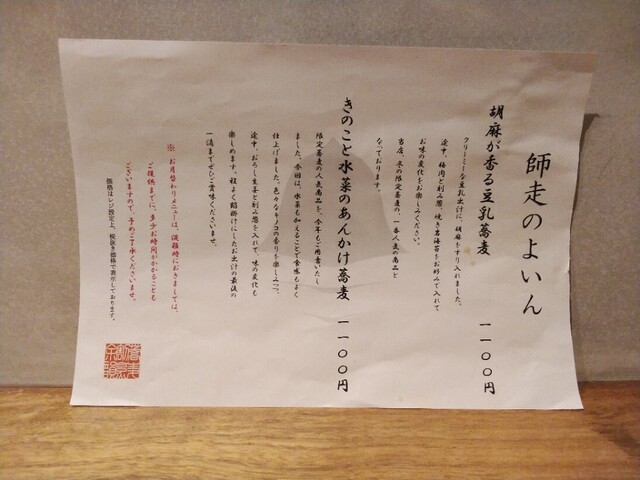 師走のよいん
胡麻が香る豆乳蕎麦 一一〇〇円
クリーミーな豆乳出汁に、胡麻をすり入れました。
途中、梅肉と刻み葱、焼き岩海苔をお好みで入れて
お味の変化をお楽しみください。
当店、冬の限定蕎麦の、一番人気の商品と
なっております。
きのこと水菜のあんかけ蕎麦 一一〇〇円
限定蕎麦の人気商品を、今年もご用意いたし
ました。今回は、水菜も加えることで食感もよく
仕上げました。色々なキノコの香りを楽しみつつ、
途中、おろし生姜と刻み葱を入れて、味の変化も
楽しめます。程よく餡掛けにしたお出汁の最後の
一滴までぜひご賞味くださいませ。
※ お月替わりメニューは、混雑時におきましては、
ご提供までに、多少お時間がかかることも
ございますので、予めご了承くださいませ。
価格はレジ設定上、税抜き価格で表示しております。